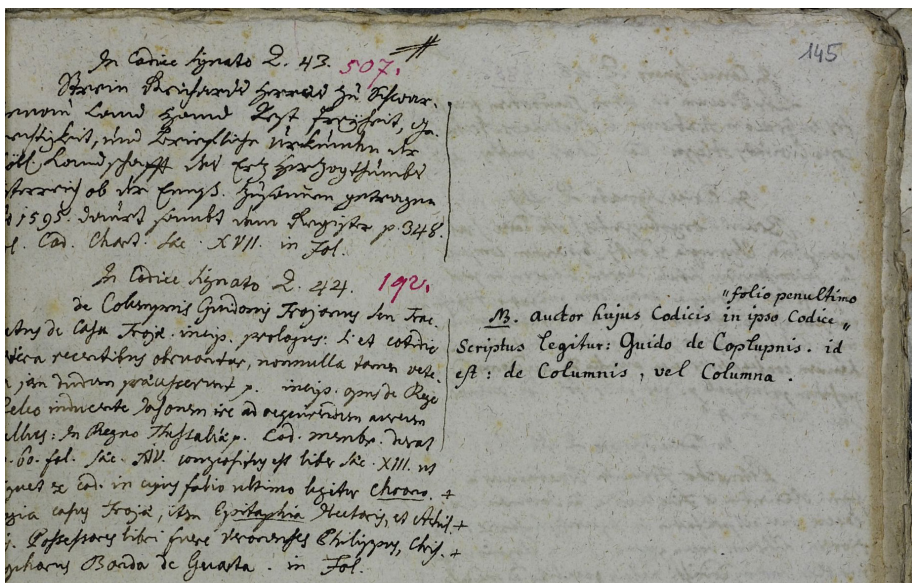 145
In Codice signato 2. 43. 507.
Strein Reichards Herrns zu Schwar-
Land Hand Vest Freiheit, Ge-
rechtigkeit, und Briefliche Urkunden der
löbl. Landschafft des Ertz Hertzogthumbs
sterreich ob der Ennß. Zusammen getragen
1595. daurt sambt dem Register p. 348.
Cod. Chart. Sæc. XVII. in Fol.
In Codice signato 2. 44. 192.
de Columpnis Guidonis Trojanus seu Trac-
tatus de Casu Trojæ. incip. prologus: Si et cotidie
vetera recentibus obruantur, nonnulla tamen vete-
jam dudum præcesserunt p. incip. opus de Rege
Peleo inducente Jasonem ire ad aureum
In Regno Thessaliæ p. Cod. membr. durat
60. fol. Sæc. XIV. compositus est liber Sæc. XIII. ut
ex cod. in cujus folio ultimo legitur Chrono- +
casus Trojæ, item Epitaphia Hectoris, et Achil- +
Possessores libri fuere Veronenses Philippus, Chris- +
tophorus Bonda de Guarta. in Fol.
"folio penultimo
NB. auctor hujus Codicis in ipso Codice „
Scriptus legitur: Guido de Coplupnis. id
est: de Columnis, vel Columna.